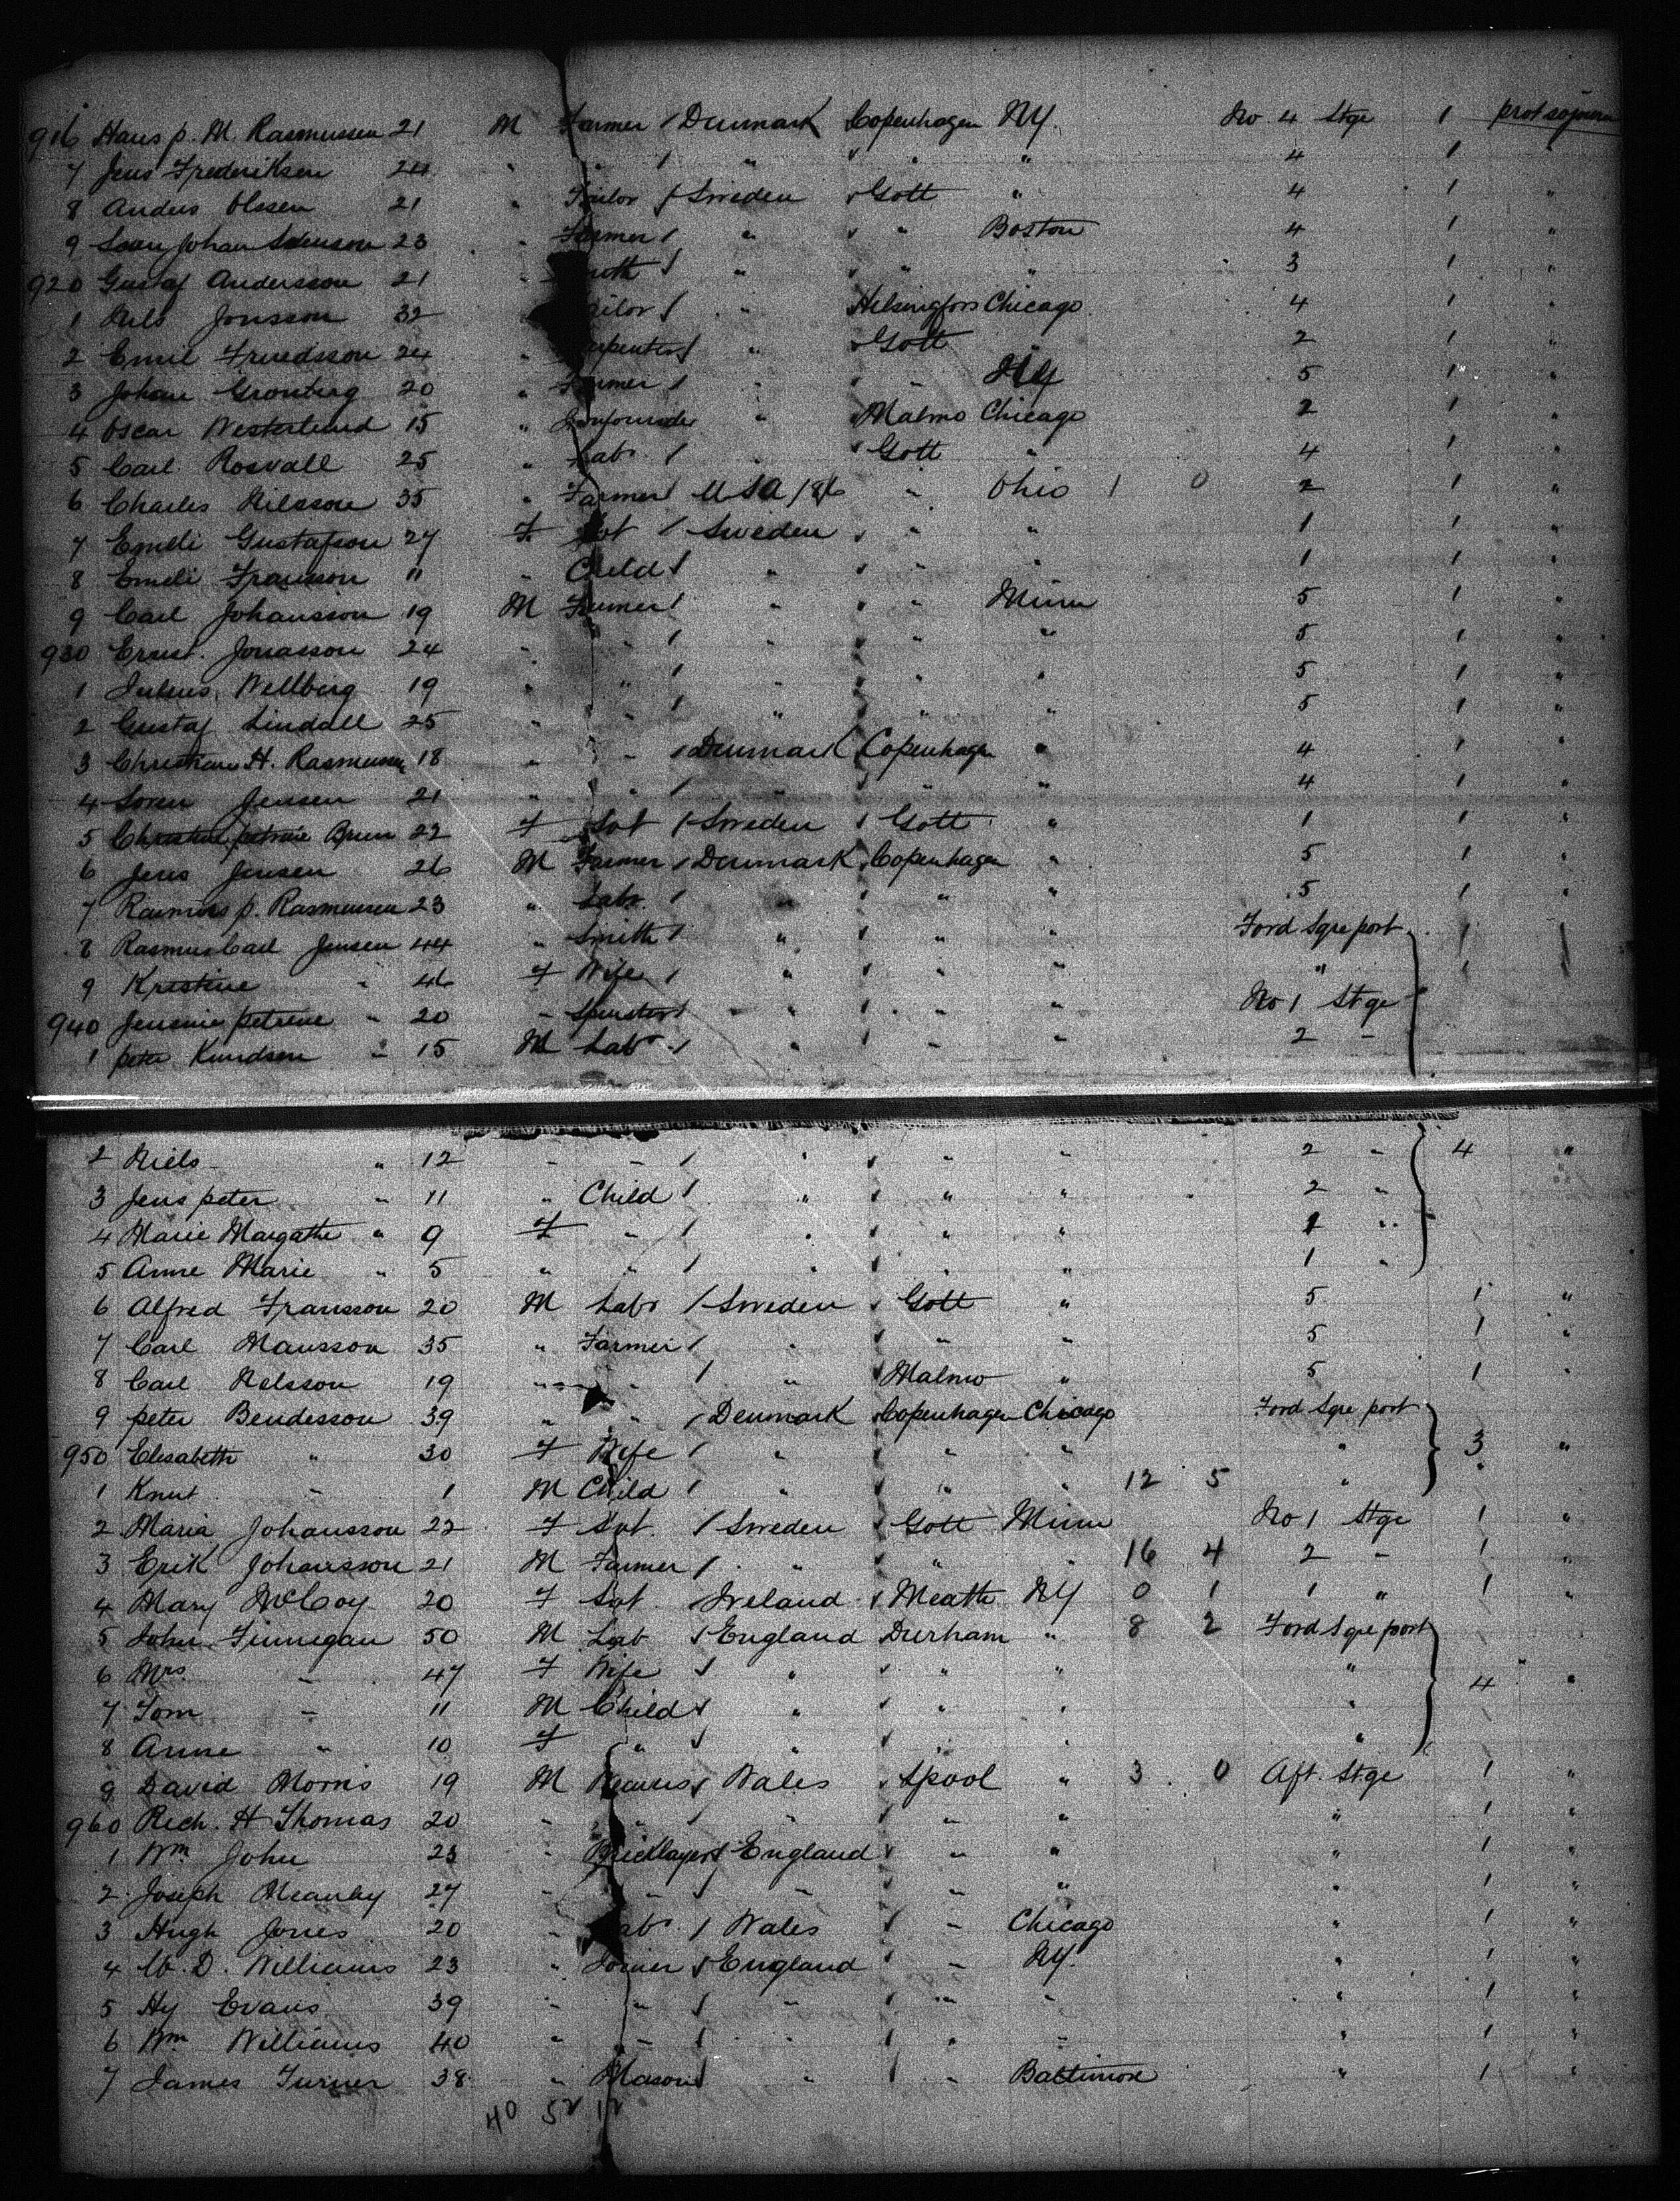 916 Hans p. M. Rasmussen 21 M Farmer / Denmark Copenhagen NY. No 4 Stge 1 prot sojourn
7 Jens Frederiksen 24 " " / " " " 4 1 "
8 Andus Olssen 21 " Tailor / Sweden Gott " 4 1 "
9 Johan 23 " Farmer / " " Boston 4 1 "
920 Gustaf Andersson 21 " / " " " 3 1 "
1 Nils Jonsson 32 " / " Helsingfors Chicago 4 1 "
2 Emil 24 " / " Gott 2 1 "
3 Johan Gronberg 20 " Farmer / " " NY 5 1 "
4 Oscar Westerlund 15 " " Malmo Chicago 2 1 "
5 Carl Rosvall 25 " Labr / " Gott " 4 1 "
6 Charles Nilsson 35 " Farmer / U S A " Ohio 1 0 2 1 "
7 Emeli Gustafson 27 F Svt / Sweden " " 1 1 "
8 Emeli Fransson 11 " Child / " " " 1 1 "
9 Carl Johansson 19 M Farmer / " " Minn 5 1 "
930 Ernst. Jonasson 24 " " / " " " 5 1 "
1 Julius Wellberg 19 " " / " " " 5 1 "
2 Gustaf Lindall 25 " " / " " " 5 1 "
3 Christian H. Rasmussen 18 " " / Denmark Copenhagen " 4 1 "
4 Soren Jensen 21 " " / " " " 4 1 "
5 Christine Petrine Bruun 22 F Svt / Sweden Gott " 1 1 "
6 Jens Jensen 26 M Farmer / Denmark Copenhagen " 5 1 "
7 Rasmus p. Rasmussen 23 " Labr. / " " " 5 1 "
8 Rasmus Carl Jensen 44 " Smith / " " " Ford Sqre port
9 Kristine " 46 F Wife / " " " "
940 Jensine petrine " 20 " Spinster / " " " No 1 Stge
1 peter Knudsen " 15 M Labr / " " " 2 "
2 Niels " 12 " " / " " " 2 " 4 "
3 Jens peter " 11 " Child / " " " 2 "
4 Marie Margathe " 9 F " / " " " 1 "
5 Anne Marie " 5 " " / " " " 1 "
6 Alfred Fransson 20 M Labr / Sweden Gott " 5 1 "
7 Carl Mansson 35 " Farmer / " " " 5 1 "
8 Carl Nelsson 19 " " / " Malmo " 5 1 "
9 peter Bendesson 39 " " / Denmark Copenhagen Chicago Ford Sqre port
950 Elisabeth " 30 F Wife / " " " " 3 "
1 Knut " 1 M Child / " " " 12 5 "
2 Maria Johansson 22 F Svt / Sweden Gott Minn No 1 Stge 1 "
3 Erik Johansson 21 M Farmer / " " " 16 4 2 " 1 "
4 Mary McCoy 20 F Svt / Ireland Meath NY 0 1 1 " 1 "
5 John Finnegan 50 M Lab / England Durham " 8 2 Ford Sqre port
6 Mrs " 47 F Wife / " " " " 4 "
7 Tom " 11 M Child / " " " "
8 Anne " 10 F " / " " " "
9 David Morris 19 M / Wales Lpool " 3 0 Aft. Stge 1 "
960 Rich. H Thomas 20 " " / " " " " 1 "
1 Wm John 23 " Bricklayer / England " " " 1 "
2 Joseph 27 " " / " " " " 1 "
3 Hugh Jones 20 " Labr. / Wales " Chicago " 1 "
4 W. D. Williams 23 " Joiner / England " NY. " 1 "
5 Hy Evans 39 " " / " " " " 1 "
6 Wm Williams 40 " " / " " " " 1 "
7 James Turner 38 " Mason / " " Baltimore " 1 "
40 52 12